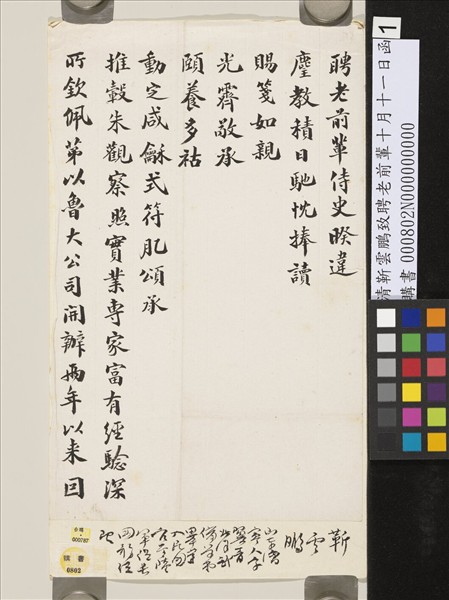 聘老前輩侍史睽違
麈教積日馳忱捧讀
賜箋如親
光霽敬承
頤養多祜
動定咸龢式符肌頌承
推轂朱觀察照實業專家富有經驗深
所欽佩弟以魯大公司開辦兩年以來因
靳雲鵬
清靳雲鵬致聘老前輩十月十一日函
購書 000802N000000000
1
000787
0802